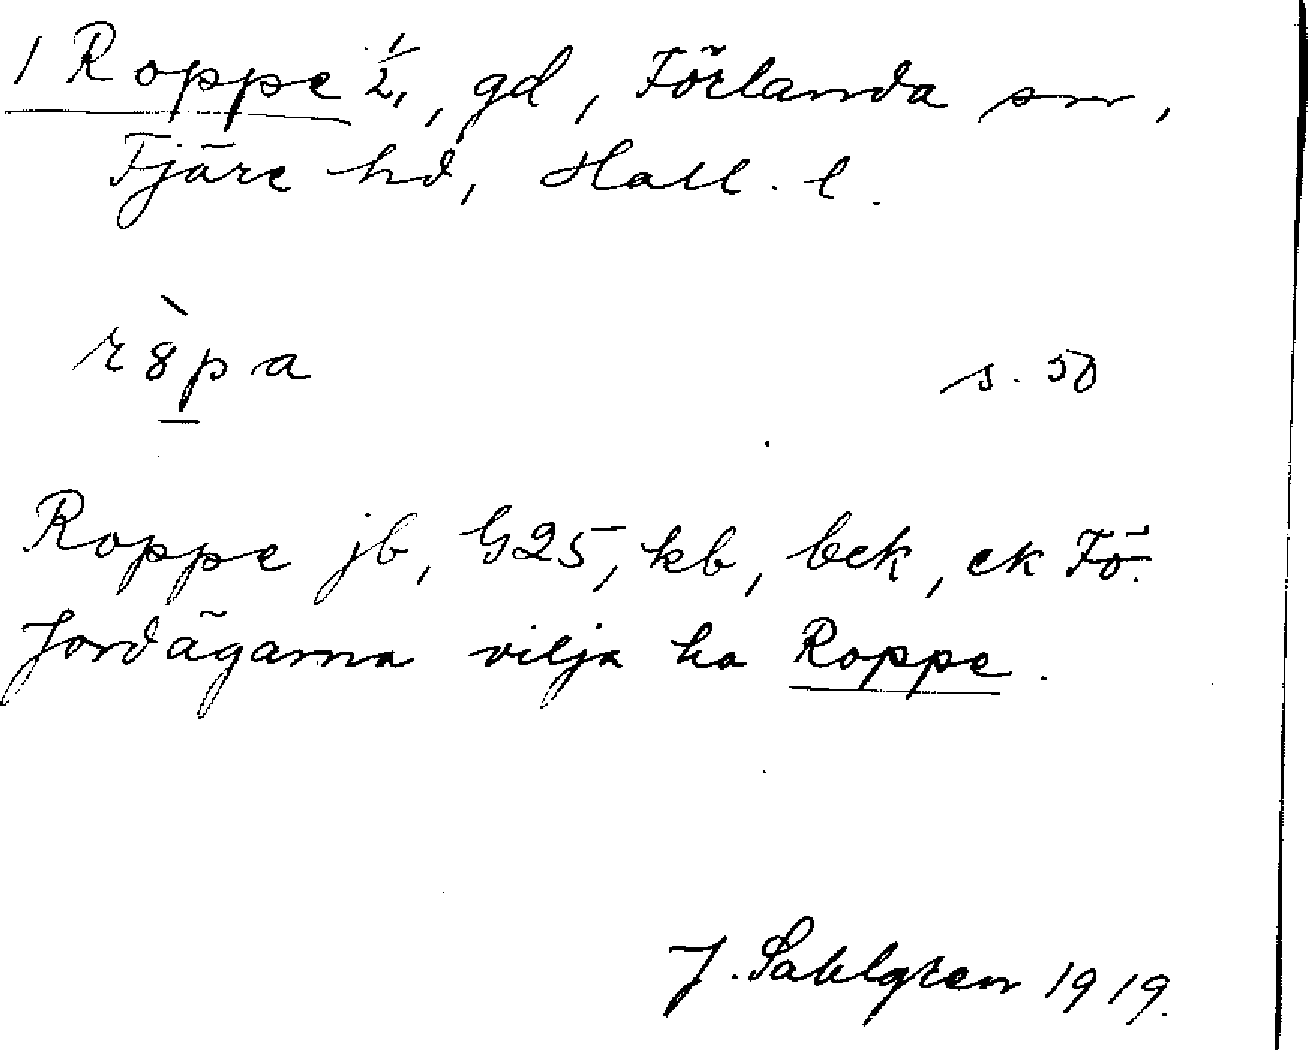 1 Roppe 1/2, gd, Förlanda sn,
Fjäre hd, Hall. l.
r8̀p̲a s. 50
Roppe jb, G25, kb, bek, ek Fö.
Jordägarna vilja ha Roppe.
J. Sahlgren 1919.